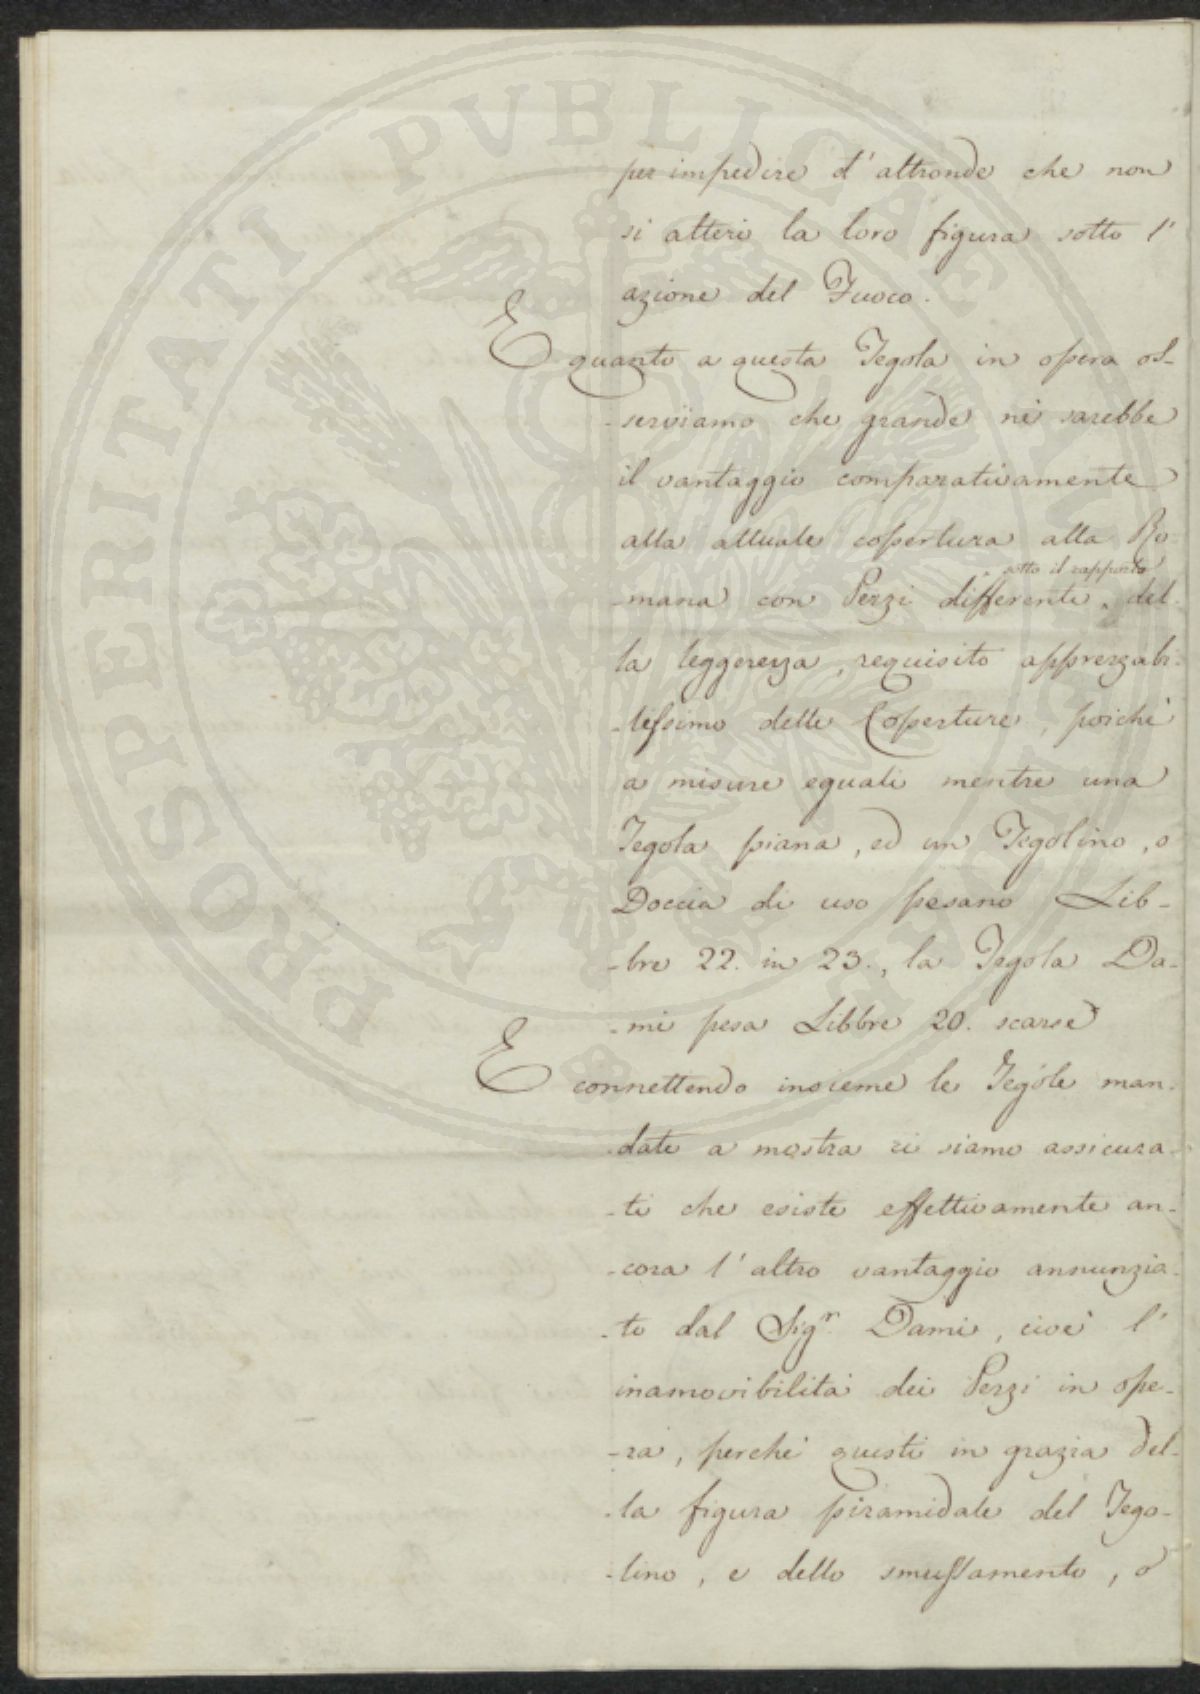 per impedire d'altronde che non
si alteri la loro figura sotto l'
azione del Fuoco.
E quanto a questa Tegola in opera os-
-serviamo che grande nè sarebbe
il vantaggio comparativamente
alla attuale copertura alla Ro-
sotto il rapporto
-mana con Pezzi differente, del-
la leggerezza, requisito apprezzabi-
-lissimo delle Coperture, poichè
a misure eguali mentre una
Tegola piana, ed un Tegolino, o
Doccia di uso pesano Lib-
-bre 22. in 23., la Tegola Da-
-mi pesa Libbre 20. scarse
E connettendo insieme le Tegole man-
-date a mostra ci siamo assicura-
-ti che esiste effettivamente an-
-cora l'altro vantaggio annunzia-
-to dal Sigr. Dami, cioè l'
inamovibilità dei Pezzi in ope-
-ra, perchè questi in grazia del-
-la figura piramidale del Tego-
-lino, e dello smussamento, o
PROSPERITATI PVBLICAE